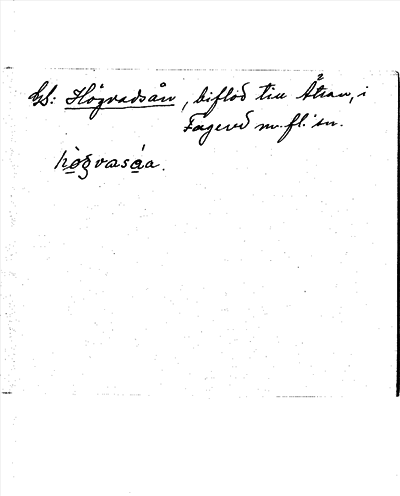 Gs: Högvadsån, biflod till Ätran, i
Fagered m. fl. sn.
hògvasåa.